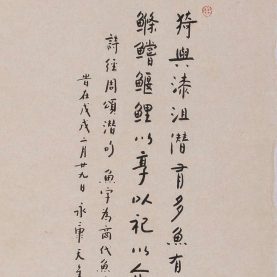 猗與漆沮潛有多魚有
鰷鱨鰋鯉以享以祀以介
詩經周頌潛句 魚字為商代魚
昔在戊戌二月廿九日 永康天